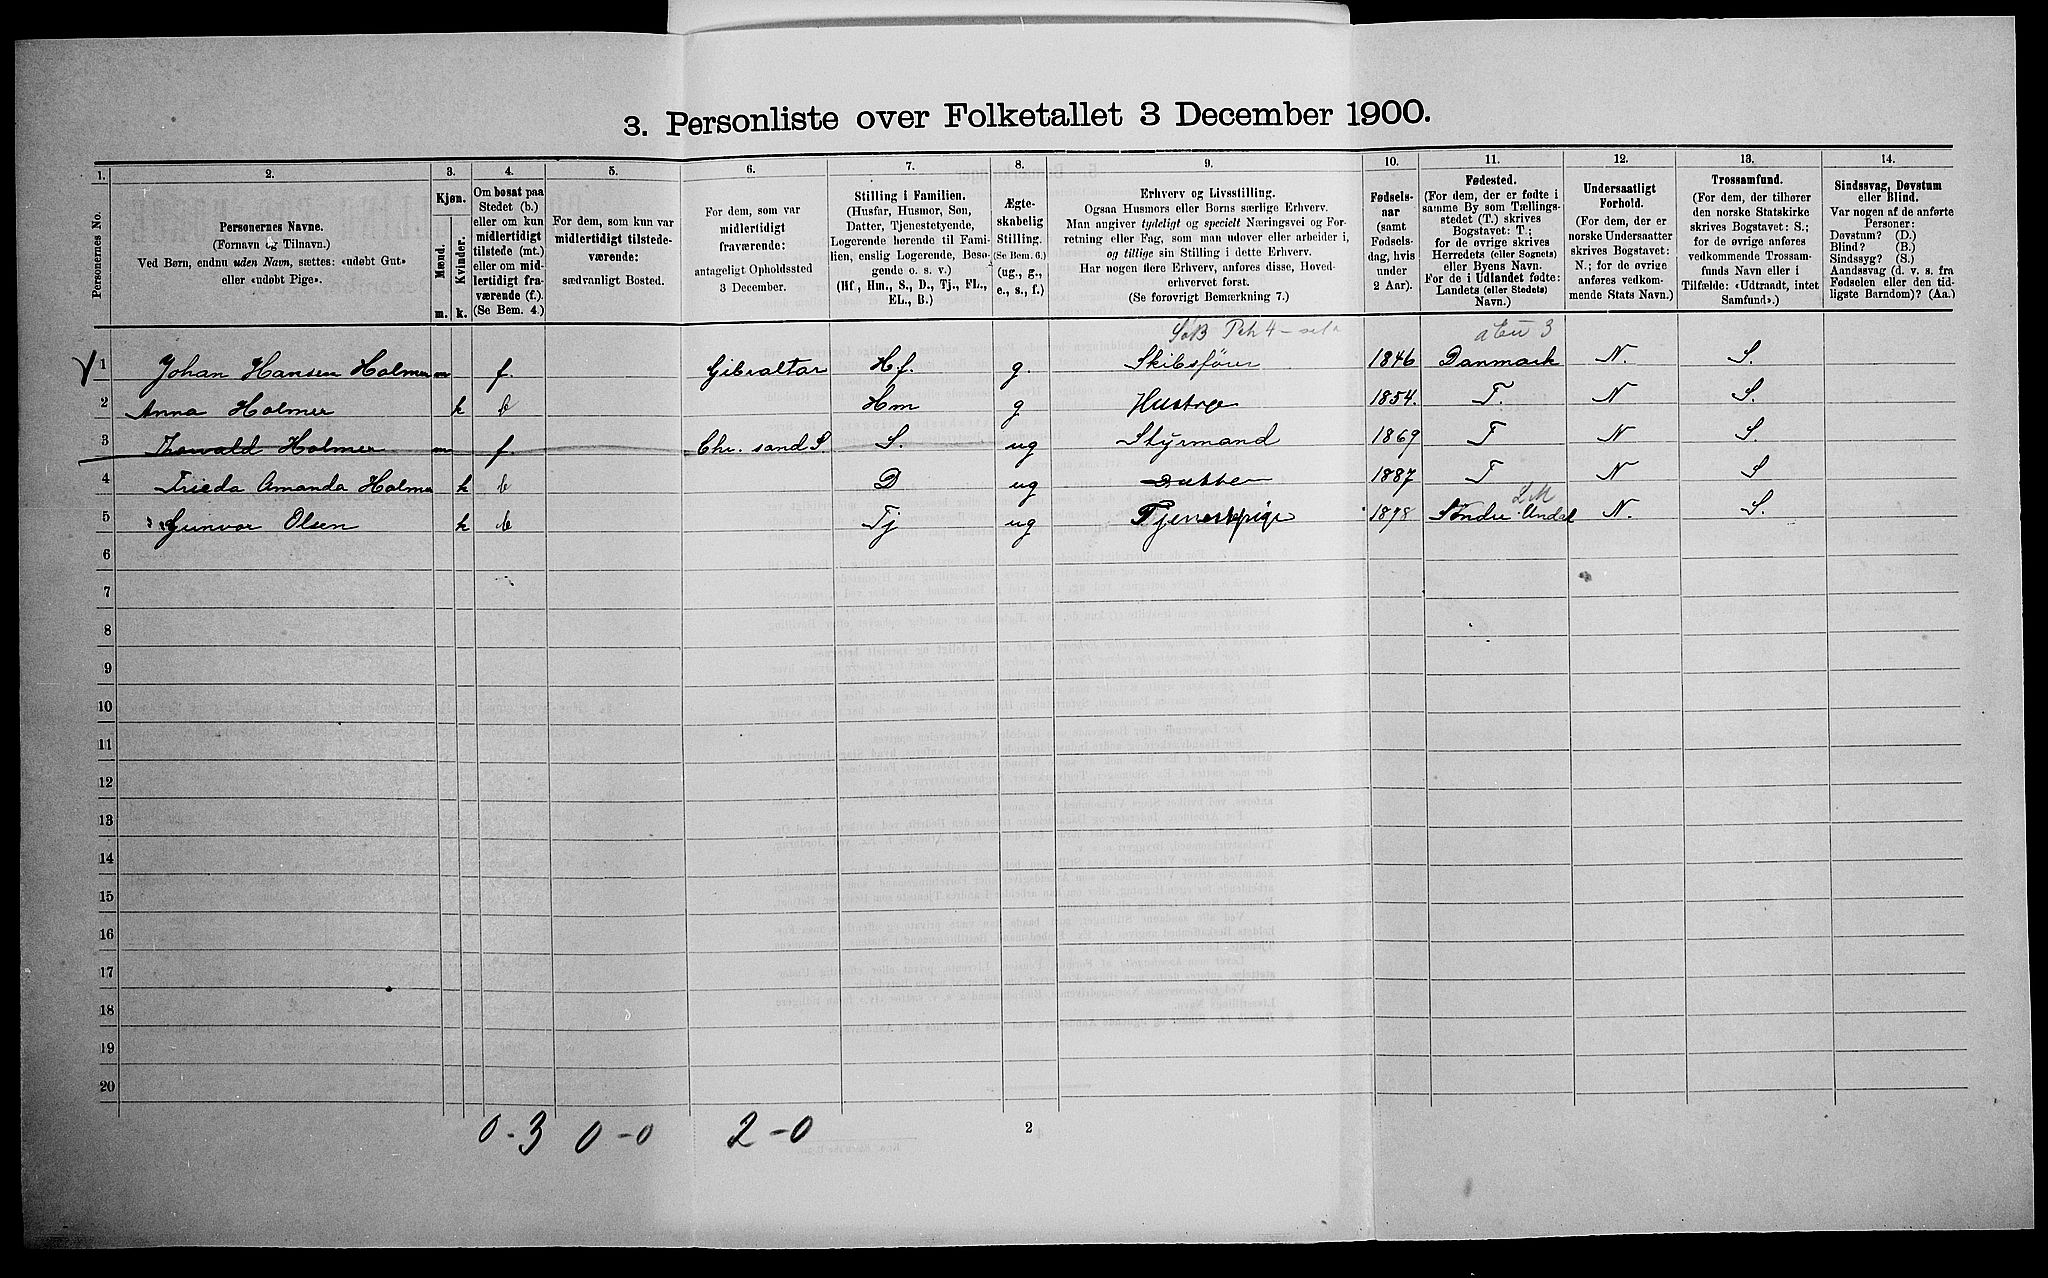 3. Personliste over Folketallet 3 December 1900.
1. 2. 3. 4. 5. 6. 7. 8. 9. 10. 11. 12. 13. 14.
Personernes No.
Personernes Navne.
(Fornavn og Tilnavn.)
Ved Børn, endnu uden Navn, sættes: «udøbt Gut»
eller «udøbt Pige».
Kjøn.
Mænd. Kvinder.
m. k.
Om bosat paa
Stedet (b.)
eller om kun
midlertidigt
tilstede (mt.)
eller om mid-
lertidigt fra-
værende (f.).
(Se Bem. 4.)
For dem, som kun var
midlertidigt tilstede-
værende:
sædvanligt Bosted.
For dem, som var
midlertidigt
fraværende:
antageligt Opholdssted
3 December.
Stilling i Familien.
(Husfar, Husmor, Søn,
Datter, Tjenestetyende,
Logerende hørende til Fami-
lien, enslig Logerende, Besø-
gende o. s. v.)
(Hf., Hm., S., D., Tj., FL.,
EL., B.)
Ægte-
skabelig
Stilling.
(Se Bem. 6.)
(ug., g.,
e., s., f.)
Erhverv og Livsstilling.
Ogsaa Husmors eller Børns særlige Erhverv.
Man angiver tydeligt og specielt Næringsvei og For-
retning eller Fag, som man udøver eller arbeider i,
og tillige sin Stilling i dette Erhverv.
Har nogen flere Erhverv, anføres disse, Hoved-
erhvervet først.
(Se forøvrigt Bemærkning 7.)
Fødsels-
aar
(samt
Fødsels-
dag, hvis
under
2 Aar).
Fødested.
(For dem, der er fødte i
samme By som Tællings-
stedet (T.) skrives
Bogstavet: T.;
for de øvrige skrives
Herredets (eller Sognets)
eller Byens Navn.
For de i Udlandet fødte:
Landets (eller Stedets)
Navn.)
Undersaatligt
Forhold.
(For dem, der er
norske Undersaatter
skrives Bogstavet:
N.; for de øvrige
anføres vedkom-
mende Stats Navn.)
Trossamfund.
(For dem, der tilhører
den norske Statskirke
skrives Bogstavet: S.;
for de øvrige anføres
vedkommende Trossam-
funds Navn eller i
Tilfælde: «Udtraadt, intet
Samfund».)
Sindssvag, Døvstum
eller Blind.
Var nogen af de anførte
Personer:
Døvstum? (D.)
Blind? (B.)
Sindssyg? (S.)
Aandssvag (d. v. s. fra
Fødselen eller den tid-
ligste Barndom)? (Aa.)
1 Johan Hansen Holmer m f. Gibraltar Hf. g. Skibsfører 1846 Danmark N. S.
2 Anna Holmer k b Hm g Hustro 1854. T. N S.
3 Thorvald Holmer m f. Chr. sand S. S. ug Styrmand 1869 T N S.
4 Frieda Amanda Holmer k b D ug Datter 1887 T N S
L M
5 Gunvor Olsen k b Tj ug Tjenestpige 1878 Söndre Undal N. S.
6
7
8
9
10
11
12
13
14
15
16
17
18
19
20
0-3 0-0 2-0
2